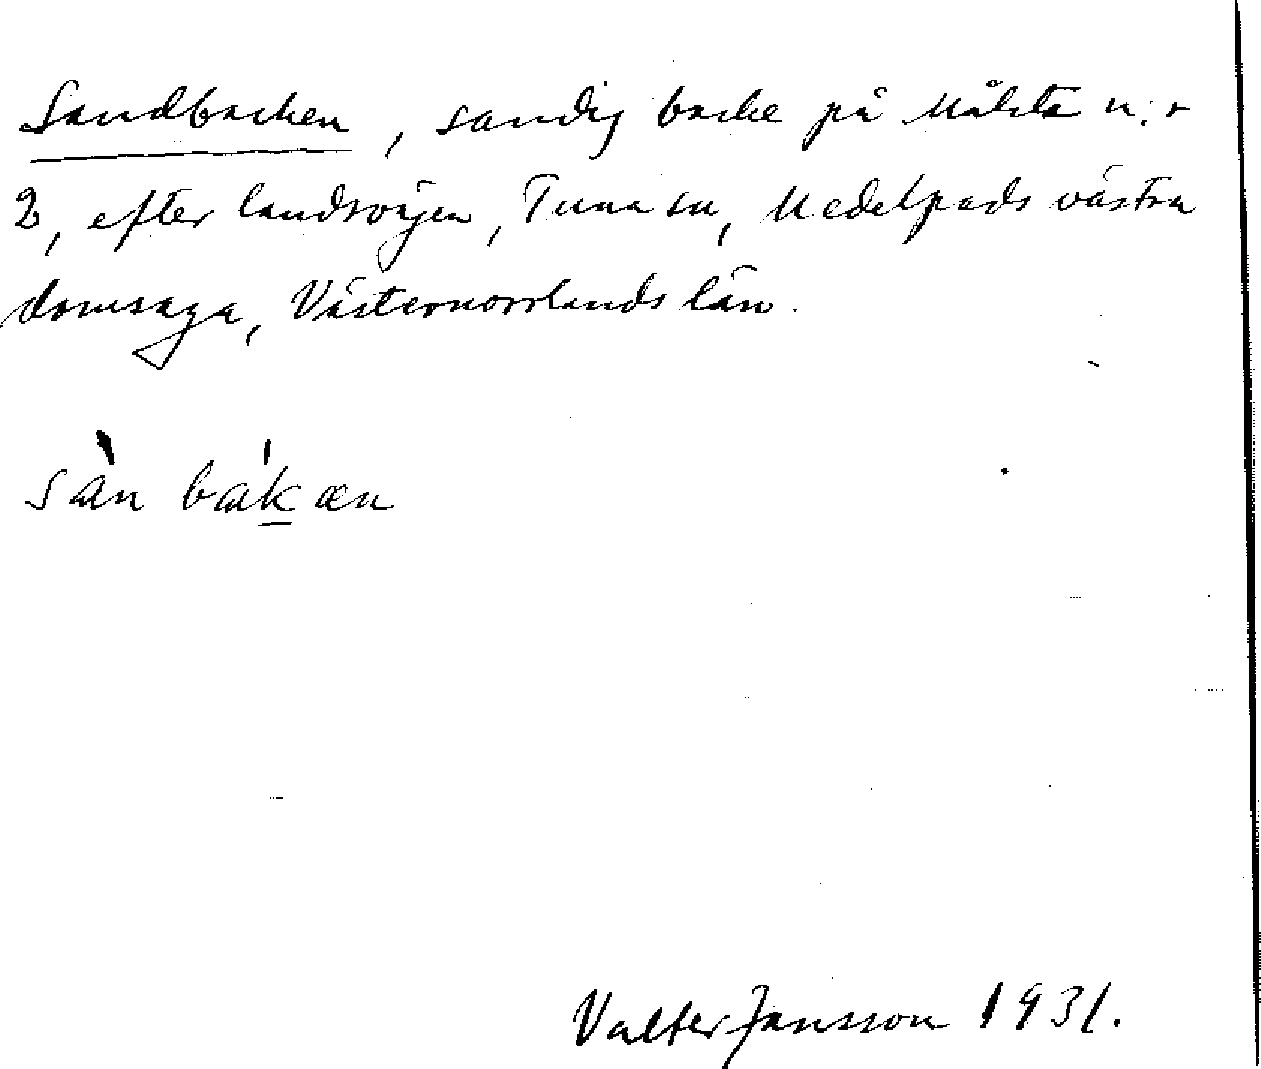 Sandbacken, sandig backe på Målsta n:r
2, efter landsvägen, Tuna sn, Medelpads västra
domsaga, Västernorrlands län.
sàn bák̲æn
Valter Jansson 1931.